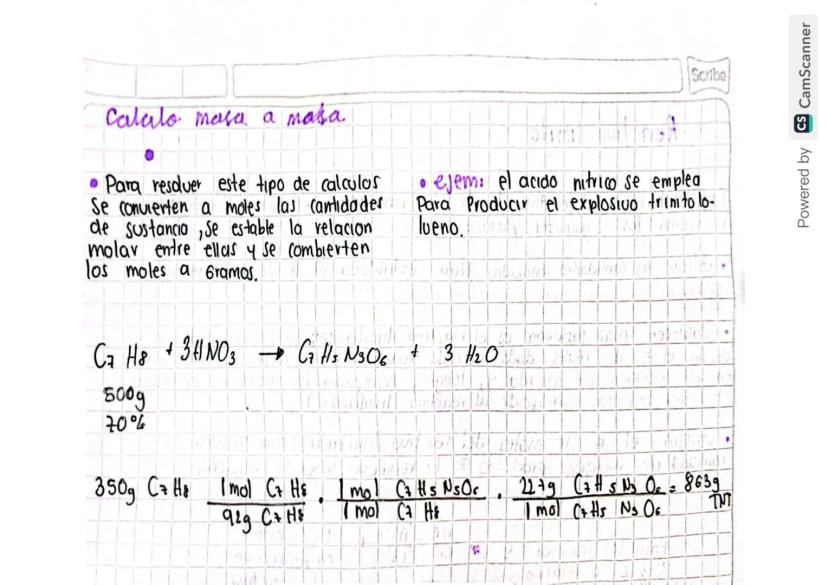 Scribe
Calculo masa a masa
• Para resolver este tipo de calculos
Se convierten a moles las cantidades
de sustancia, se estable la relacion
molar entre ellas y se combierten
los moles a Gramos.
• ejem: el acido nitrico se emplea
Para Producir el explosivo trinitolo-
lueno.
C7 H8 + 3HNO3 → C7 H5 N3O6 + 3 H2O
500g
70%
350g C7 H8 1 mol C7 H8 / 92g C7 H8 · 1 mol C7 H5 N3O6 / 1 mol C7 H8 · 227g C7 H5 N3 O6 / 1 mol C7 H5 N3 O6 = 863g TNT
Powered by CS CamScanner